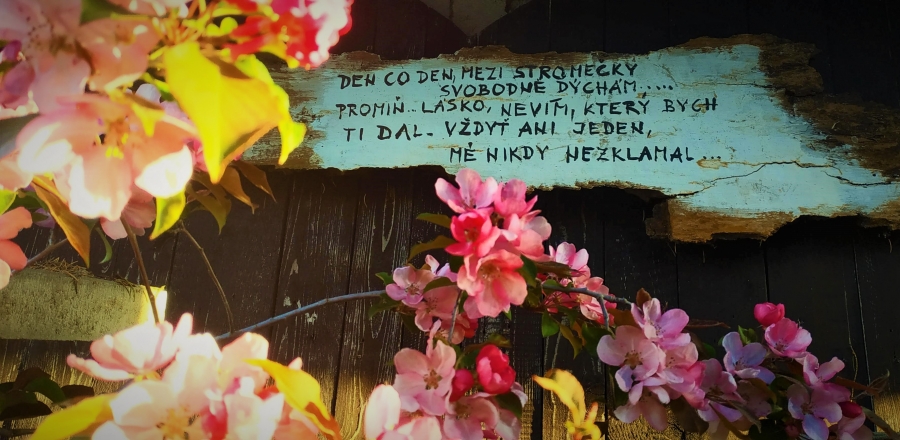 DEN CO DEN, MEZI STROMEČKY
SVOBODNĚ DÝCHÁM.....
PROMIŇ.. LÁSKO, NEVÍM, KTERÝ BYCH
TI DAL. VŽDYŤ ANI JEDEN,
MĚ NIKDY NEZKLAMAL...